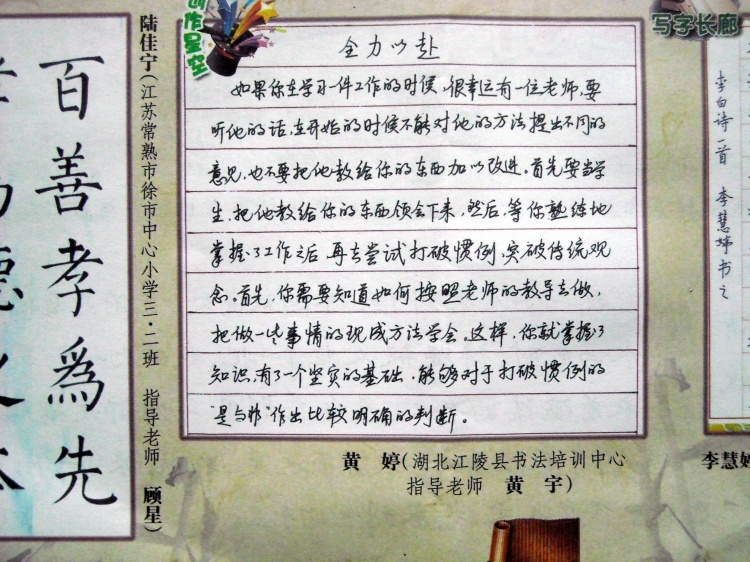 创作星空
写字长廊
百善孝爲先
陆佳宁（江苏常熟市徐市中心小学三·二班 指导老师 顾星）
全力以赴
如果你在学习一件工作的时候，很幸运有一位老师，要
听他的话，在开始的时候不能对他的方法提出不同的
意见，也不要把他教给你的东西加以改进。首先要当学
生，把他教给你的东西领会下来，然后，等你熟练地
掌握了工作之后，再去尝试打破惯例，突破传统观
念。首先，你需要知道如何按照老师的教导去做，
把做一些事情的现成方法学会。这样，你就掌握了
知识，有了一个坚实的基础，能够对于打破惯例的
“是与非”作出比较明确的判断。
黄 婷（湖北江陵县书法培训中心
指导老师 黄 宇）
李白诗一首 李慧婻书之
李慧